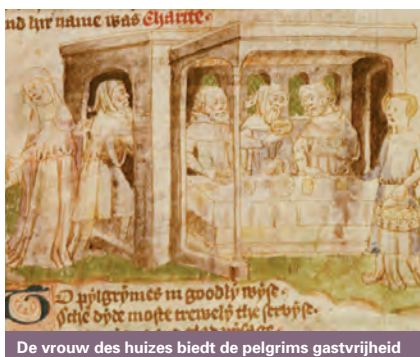 nd hyr name was Charite.
O pylgrymes in goodly wyse.
Sche dyde moste trewely the servyse.
De vrouw des huizes biedt de pelgrims gastvrijheid